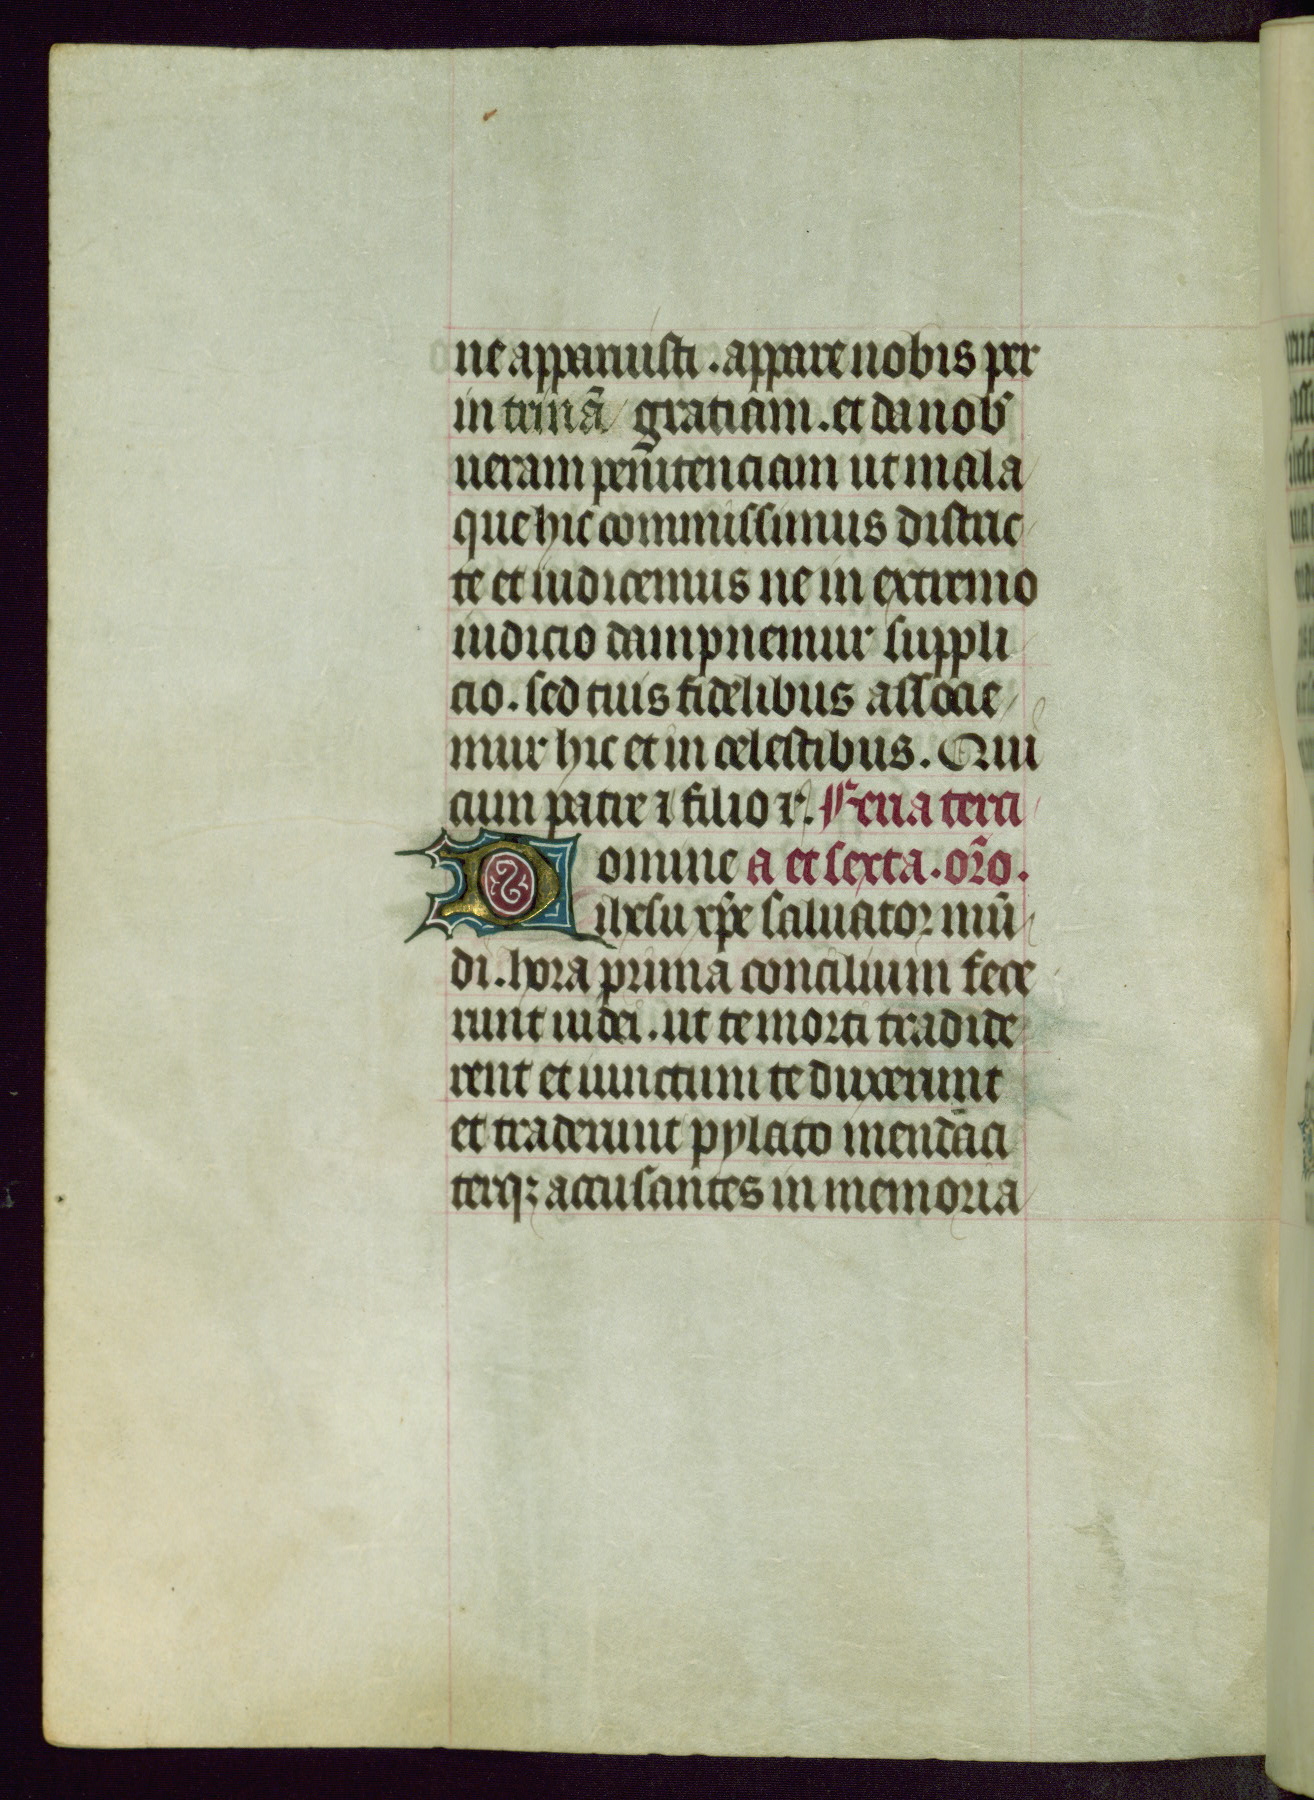 ne apparuisti . appare nobis per
in trinā gratiam . et da nob'
ueram penitenciam ut mala
que hic commissimus distric
te et iudicemus ne in extremo
iudicio dampnemur suppli
cio . sed tuis fidelibus associe
mur hic et in celestibus . Qui
cum patre ⁊ filio r'. Feria terci
Domine a et sexta . or̄o .
ihesu xp̄e saluator mū
di . hora prima concilium fece
runt iudei . ut te morti tradide
rent et uinctum te duxerunt
et traderunt pylato mendaci
terqꝫ accusantes in memoria